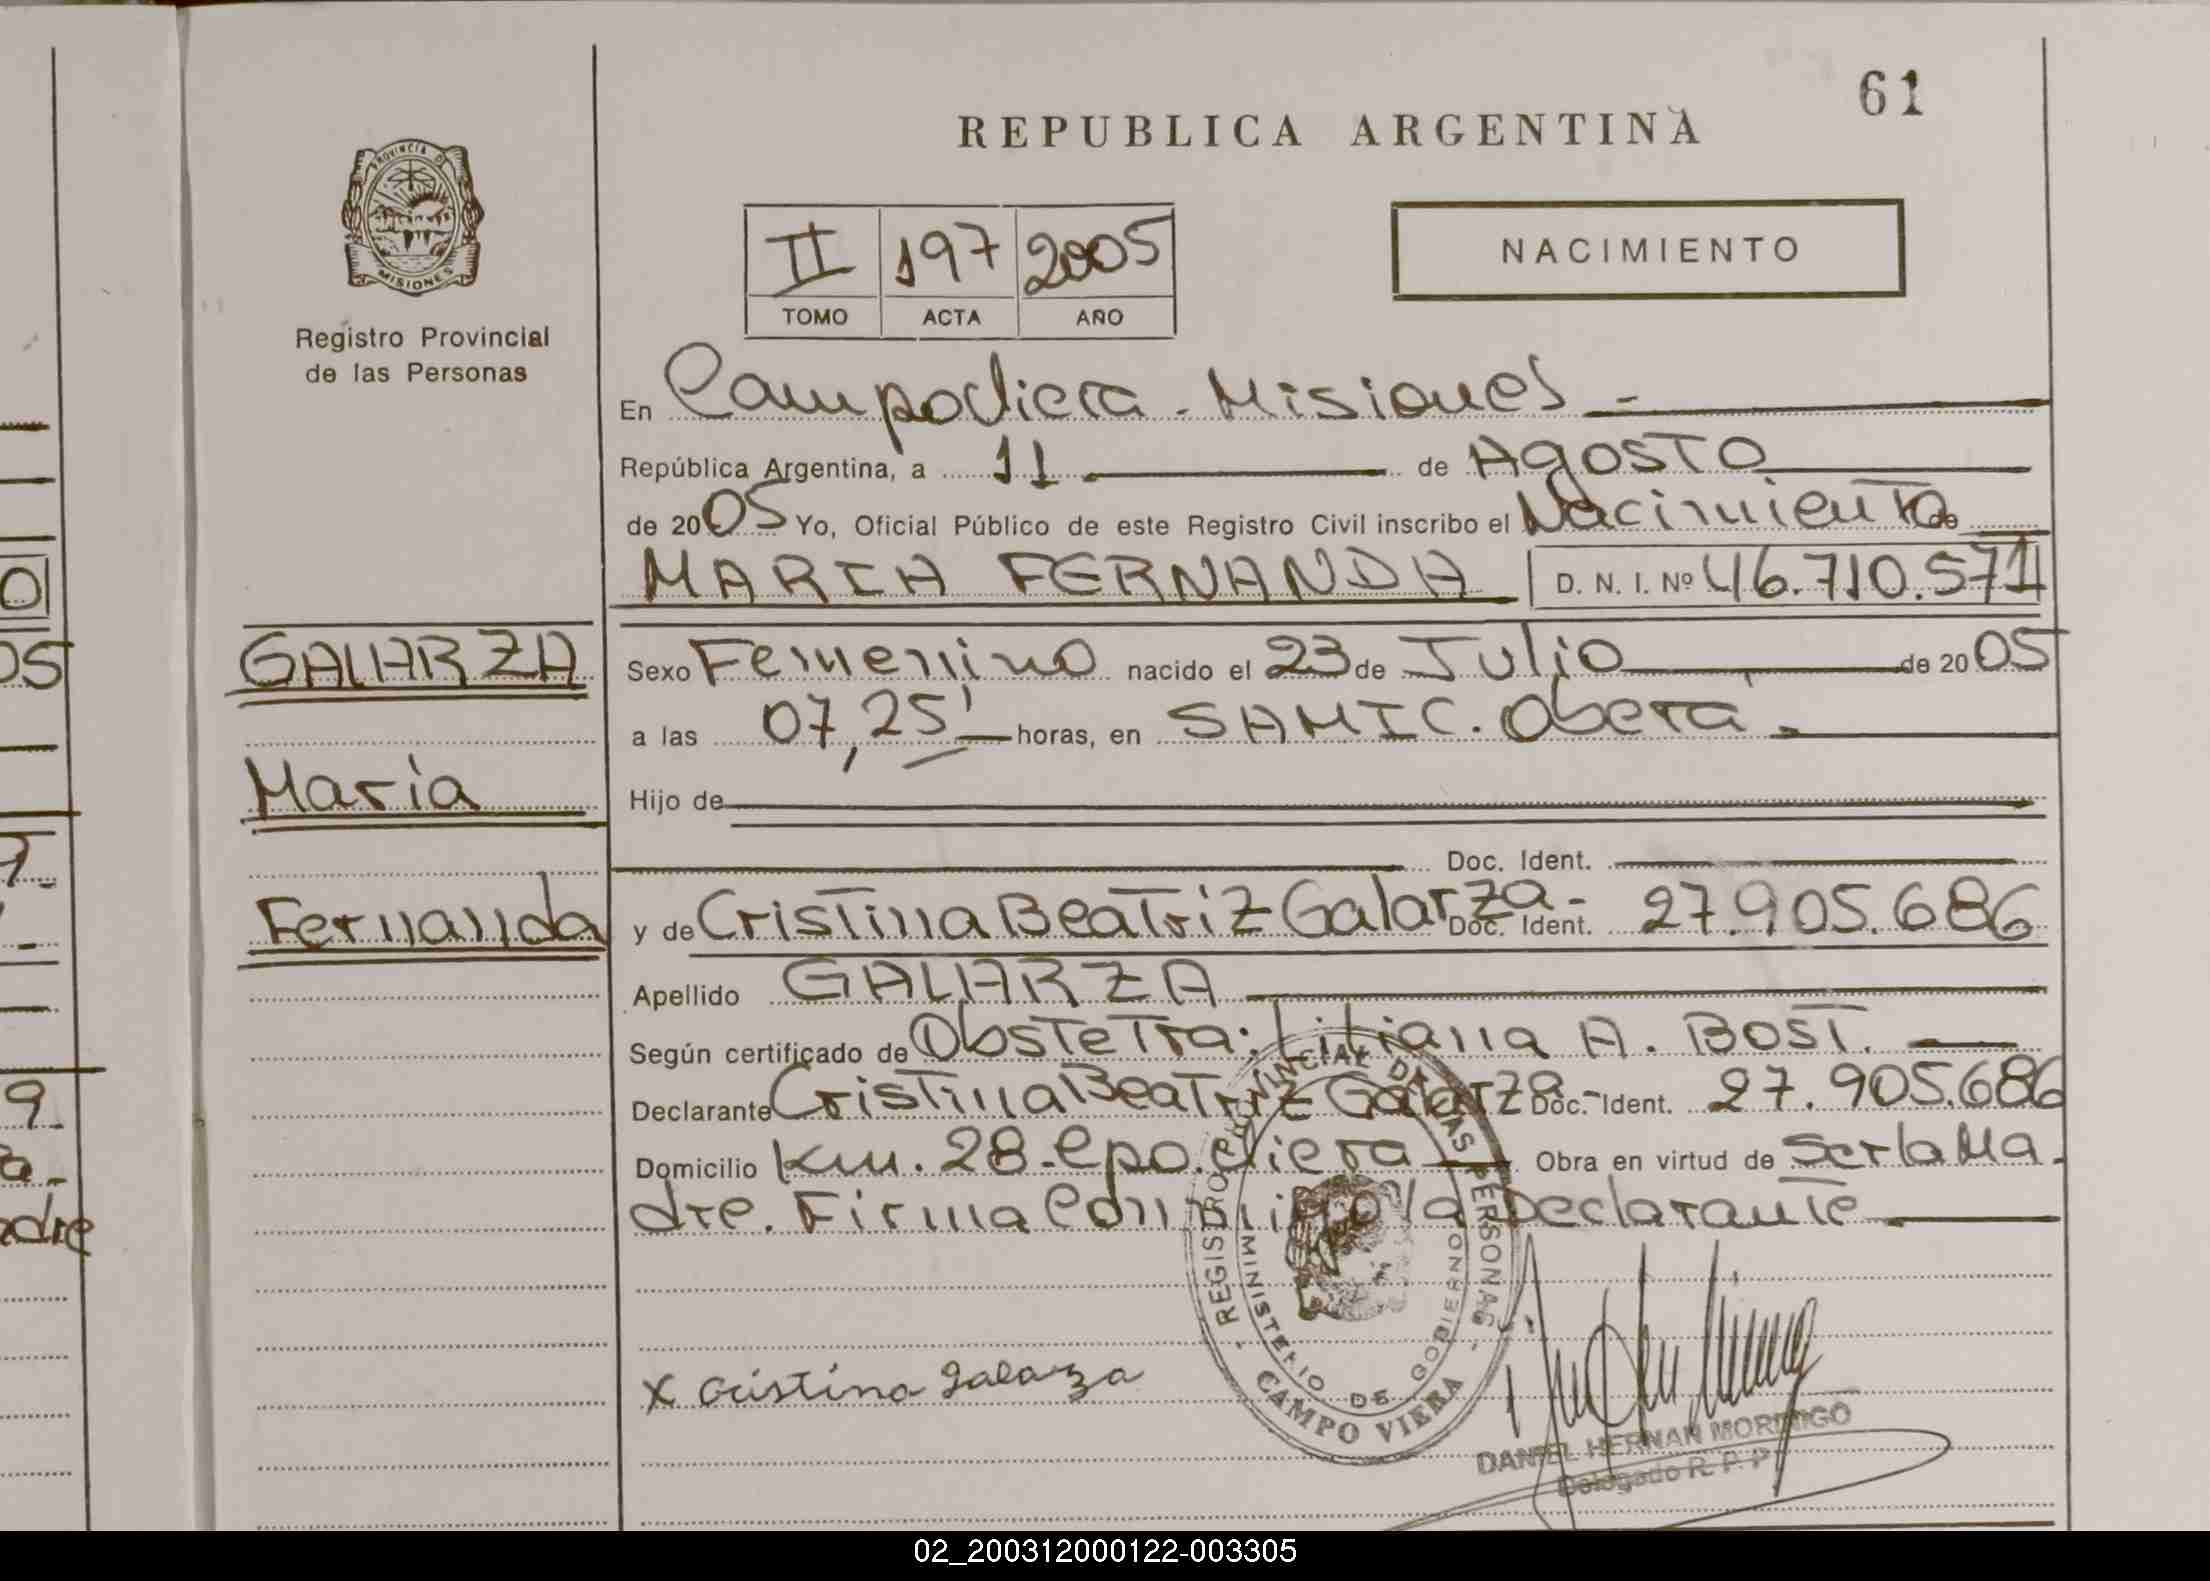 61
REPUBLICA ARGENTINA
PROVINCIA D
MISIONES
Registro Provincial
de las Personas
II 197 2005
TOMO ACTA AÑO
NACIMIENTO
En Campo Viera - Misiones -
República Argentina, a 11 de Agosto
de 2005 Yo, Oficial Público de este Registro Civil inscribo el Nacimiento de
MARIA FERNANDA D. N. I. Nº 46.710.571
GALARZA
María
Fernanda
Sexo Femenino nacido el 23 de Julio de 2005
a las 07,25' horas, en SAMIC. Oberá.
Hijo de
Doc. Ident.
y de Cristina Beatriz Galarza - Doc. Ident. 27.905.686
Apellido GALARZA
Según certificado de Obstetra: Liliana A. Bost.
Declarante Cristina Beatriz Galarza - Doc. Ident. 27.905.686
Domicilio Km. 28 - Cpo. Viera Obra en virtud de Ser la Ma-
dre. Firma Conmigo la Declarante
REGISTRO PROVINCIAL DE LAS PERSONAS
MINISTERIO DE GOBIERNO
CAMPO VIERA
X Cristina Galarza
DANIEL HERNAN MORINIGO
Delegado R. P. P.
0
05
7.
9.
a.
adre
02_200312000122-003305